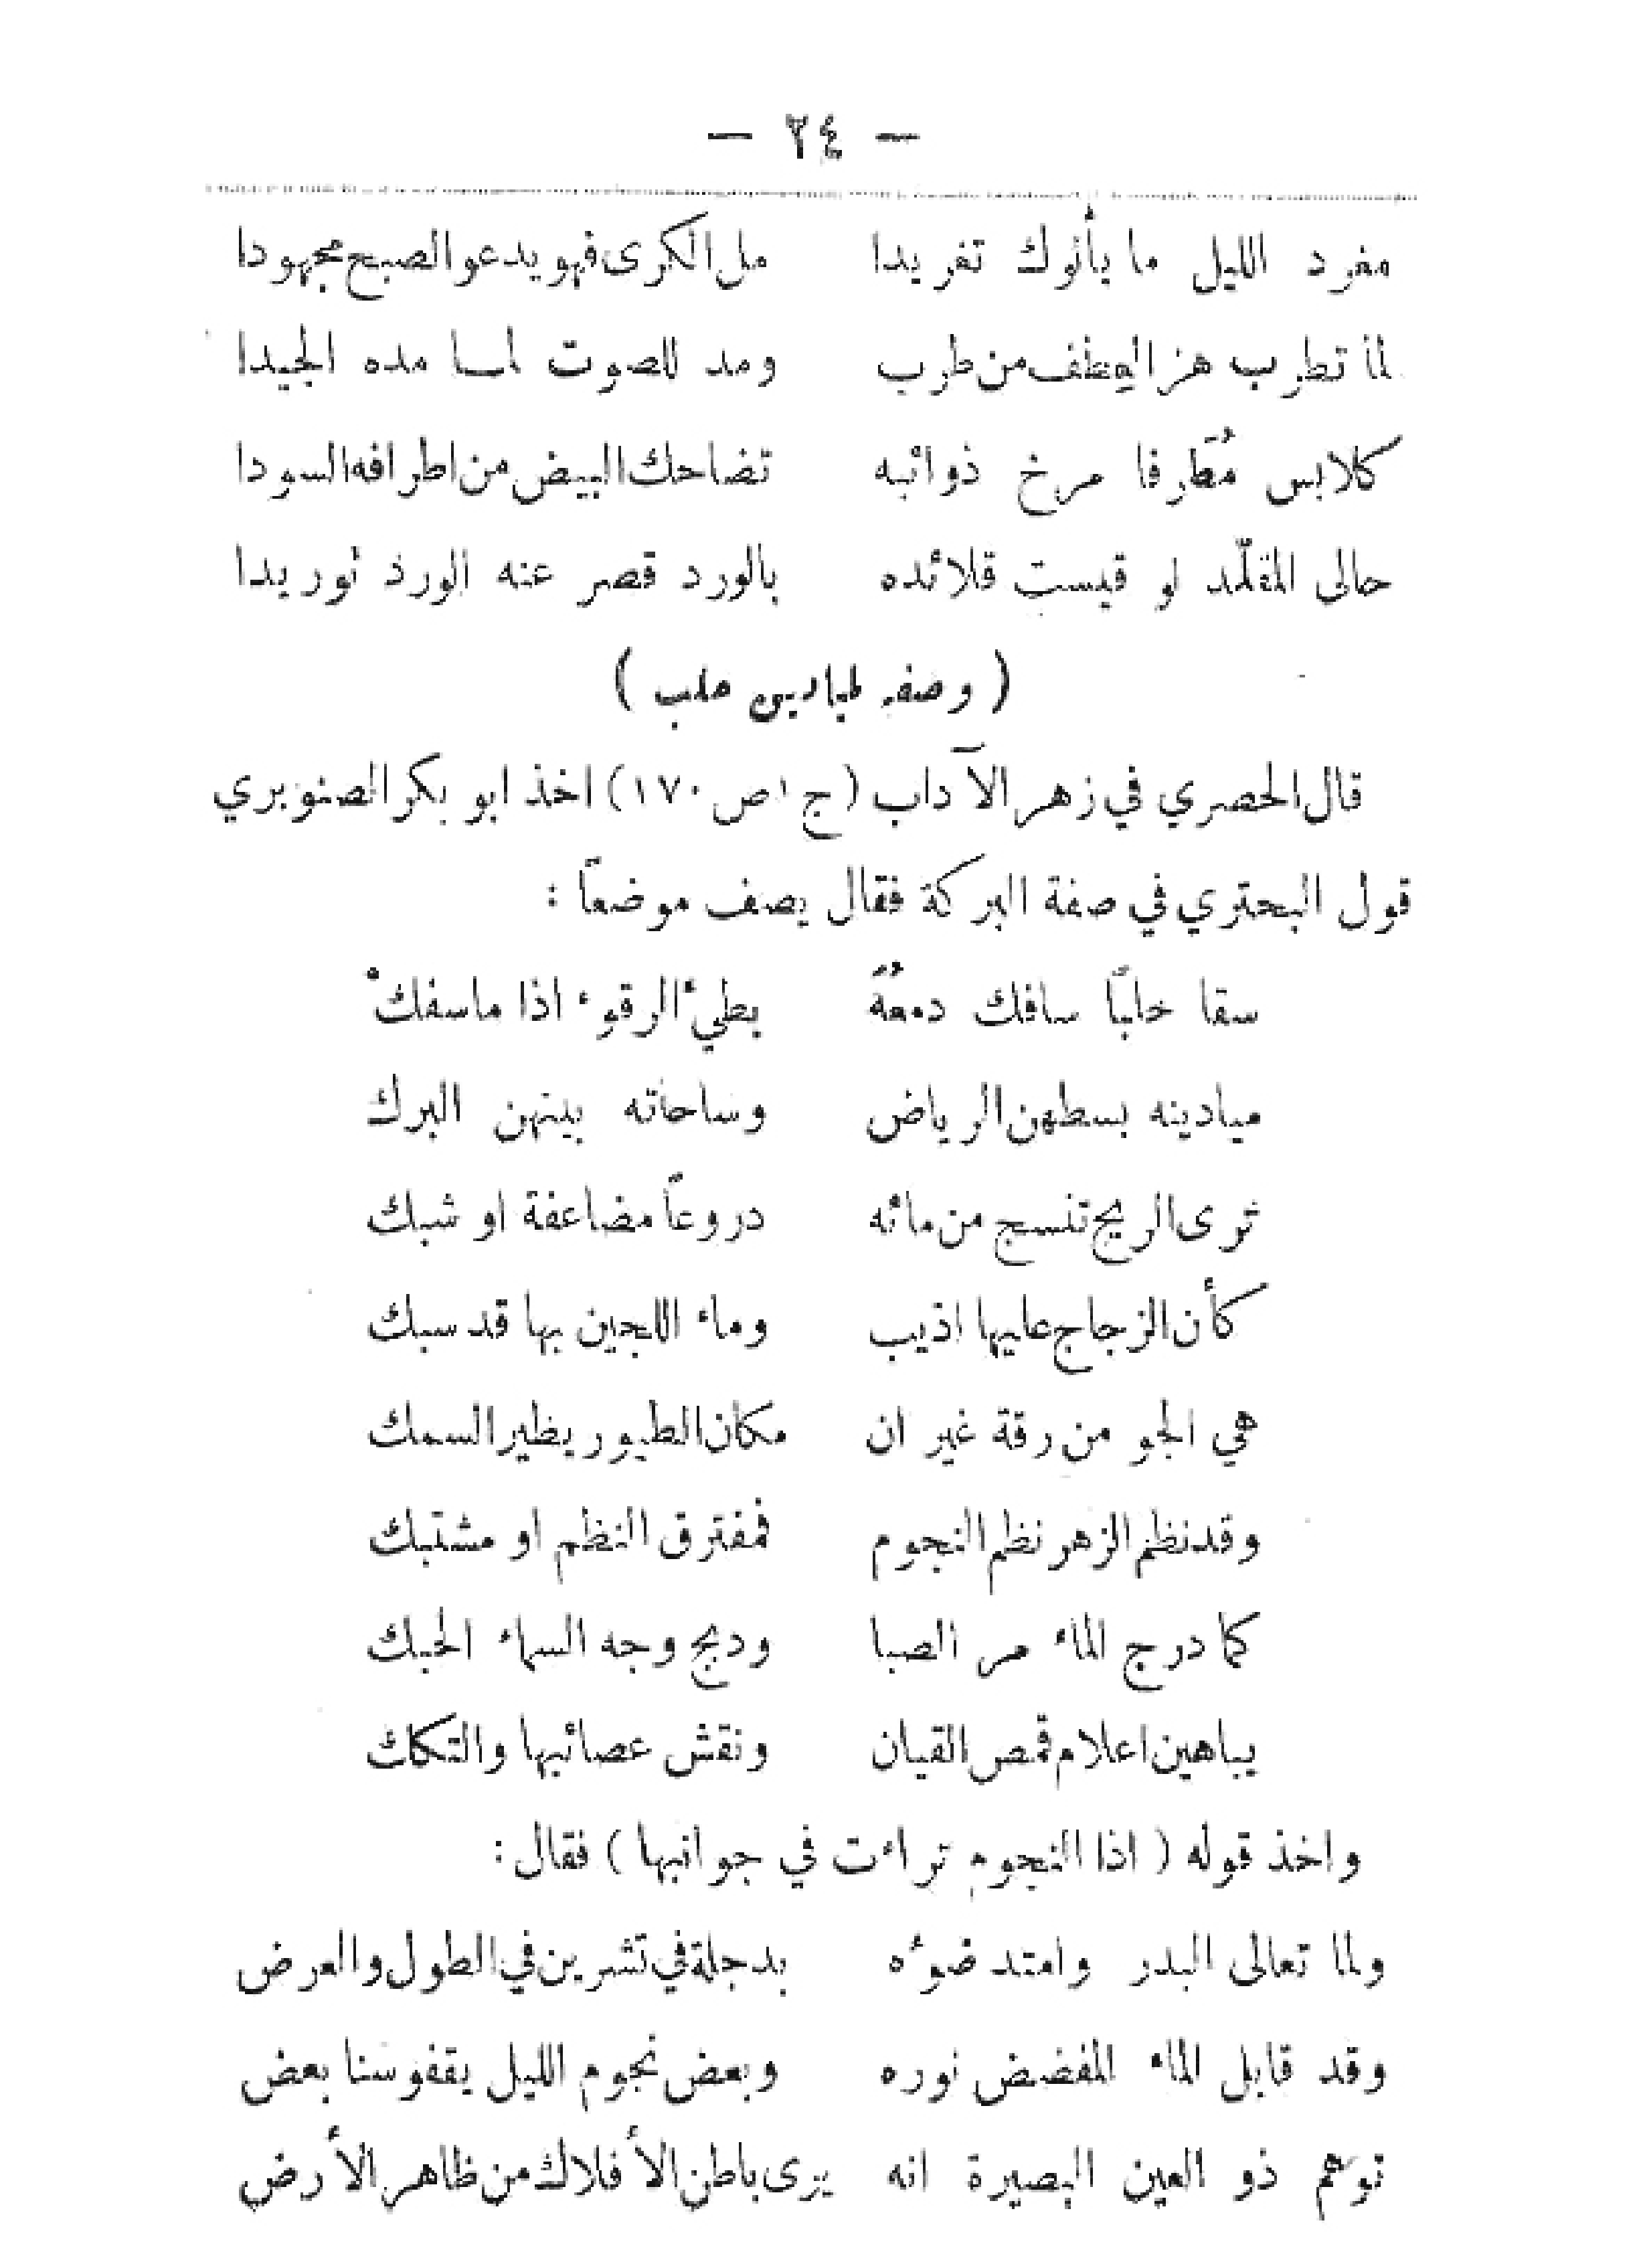 — ٢٤ —
مغرد الليل ما يألوك تغريدا مل الكرى فهو يدعو الصبح مجهودا
لما تطرب هز العطف من طرب ومد للصوت لما مده الجيدا
كلابس مُطَرفا مرخ ذوائبه تضاحك البيض من اطرافه السودا
حالى المقلّد لو قيست قلائده بالورد قصر عنه الورد توريدا
( وصفه لميادين حلب )
قال الحصري في زهر الآداب ( ج ١ ص ١٧٠ ) اخذ ابو بكر الصنوبري
قول البحتري في صفة البركة فقال يصف موضعاً :
سقا حلباً سافك دمعُهَ بطيءُ الرقوء اذا ما سفكْ
ميادينه بسطهن الرياض وساحاته بينهن البرك
ترى الريح تنسج من مائه دروعاً مضاعفة او شبك
كأن الزجاج عليها اذيب وماء اللجين بها قد سبك
هي الجو من رقة غير ان مكان الطيور يطير السمك
وقد نظم الزهر نظم النجوم فمفترق النظم او مشتبك
كما درج الماء مر الصبا ودبج وجه السماء الحبك
يباهين اعلام قمص القيان ونقش عصائبها والتكك
واخذ قوله ( اذا النجوم تراءت في جوانبها ) فقال :
ولما تعالى البدر وامتد ضوءه بدجلة في تشرين في الطول والعرض
وقد قابل الماء المفضض نوره وبعض نجوم الليل يقفو سنا بعض
توهم ذو العين البصيرة انه يرى باطن الأفلاك من ظاهر الأرض